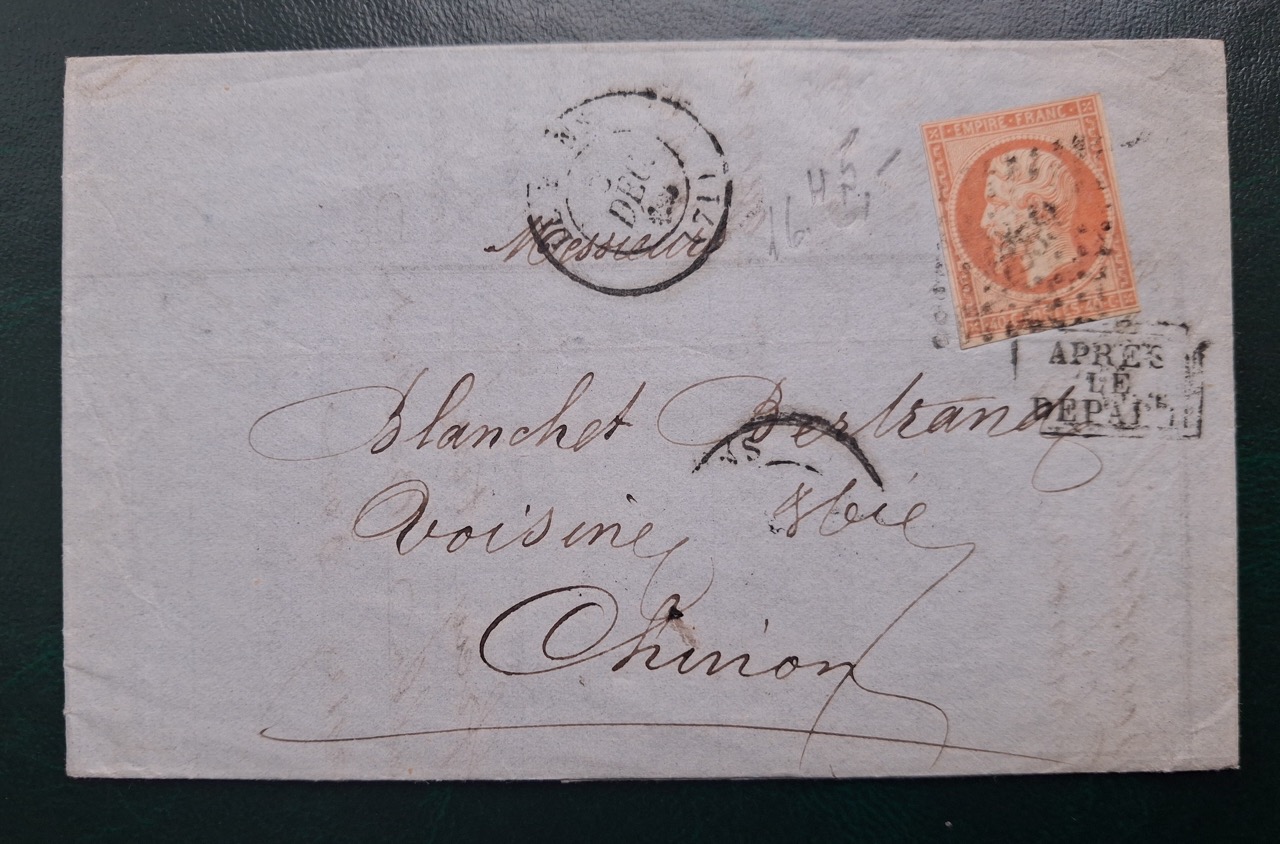 EMPIRE FRANC
DEC
(71)
16.
Messieurs
APRÈS
LE
DEPART
Blanchet Bertrand
NS
Voisine & Cie
Chinon